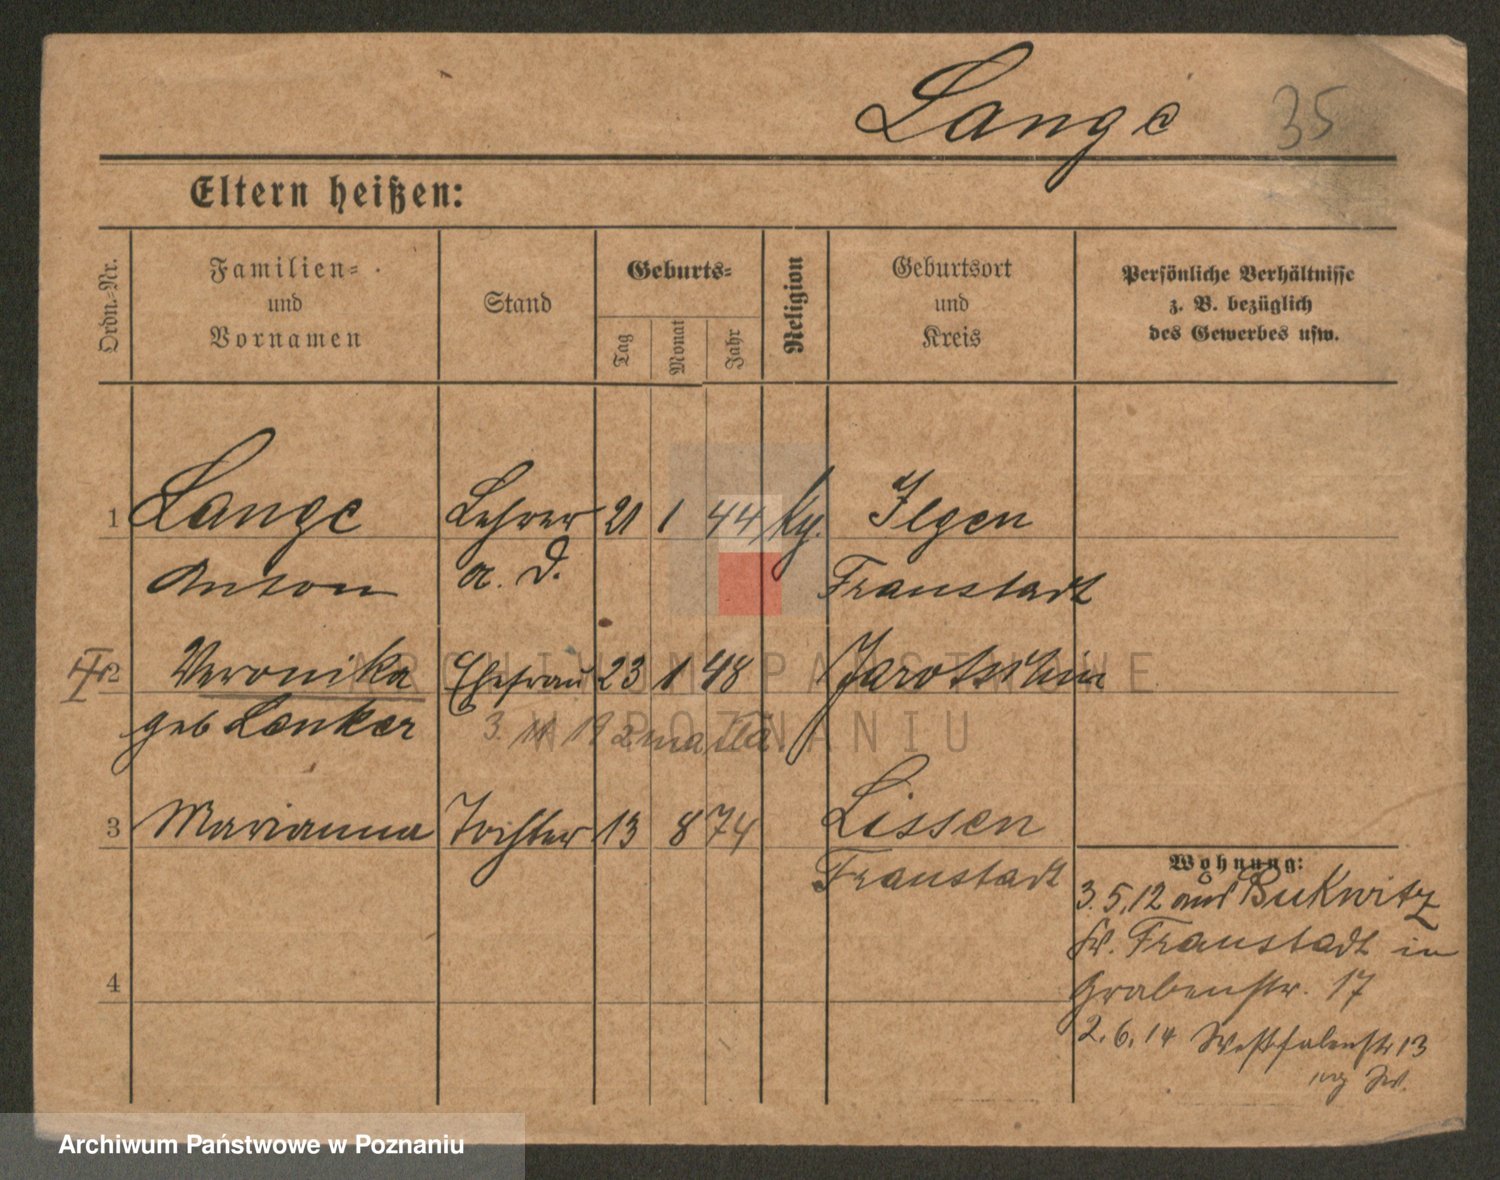 Lange 35
Eltern heißen:
Ordn.-Nr.
Familien-
und
Vornamen
Stand
Geburts-
Tag
Monat
Jahr
Religion
Geburtsort
und
Kreis
Persönliche Verhältnisse
z. B. bezüglich
des Gewerbes usw.
1 Lange Lehrer 21 1 44 Ilgen
Anton a. D. Fraustadt
2 Veronika Ehefrau 23 1 48 Jarotschin
geb Lenker 3. 19
3 Marianna Tochter 13 8 74 Lissen
Fraustadt
4
Wohnung:
3.5.12 aus Bukwitz
Kr. Fraustadt in
Grabenstr. 17
2.6.14 Westfalenstr 13
ARCHIWUM PAŃSTWOWE
W POZNANIU
Archiwum Państwowe w Poznaniu